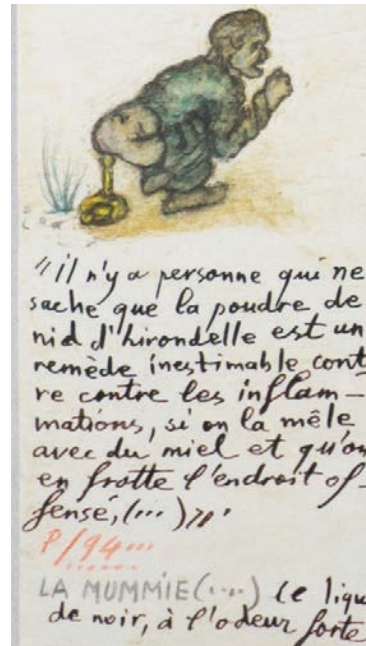 "il n'y a personne qui ne
sache que la poudre de
nid d'hirondelle est un
remède inestimable cont
re contre les inflam-
mations, si on la mêle
avec du miel et qu'on
en frotte l'endroit of-
fensé, (...)".
P/94...
LA MUMMIE(....) Ce liqu
de noir, à l'odeur forte